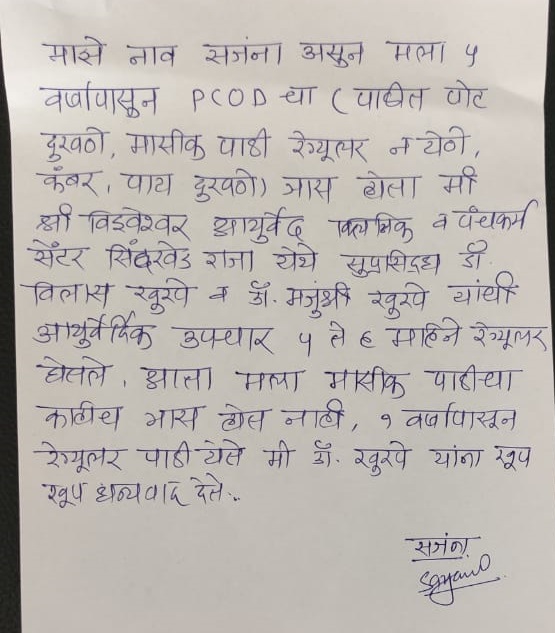 माझे नाव सजंना असुन मला ५
वर्षापासुन PCOD चा (पाळीत पोट
दुखणे, मासीक पाळी रेग्यूलर न येणे,
कंबर, पाय दुखणे) त्रास होता मी
श्री विश्वेश्वर आयुर्वेद क्लिनिक व पंचकर्म
सेंटर सिंदखेड राजा येथे सुप्रासिद्ध डॉ.
विलास खुरपे व डॉ. मजुंश्री खुरपे यांची
आयुर्वेदिक उपचार ५ ते ६ महिने रेग्यूलर
घेतले, आता मला मासीक पाळीचा
काहीच त्रास होत नाही, १ वर्षापासुन
रेग्यूलर पाळी येते मी डॉ. खुरपे यांना खूप
खूप धन्यवाद देते..
सजंना